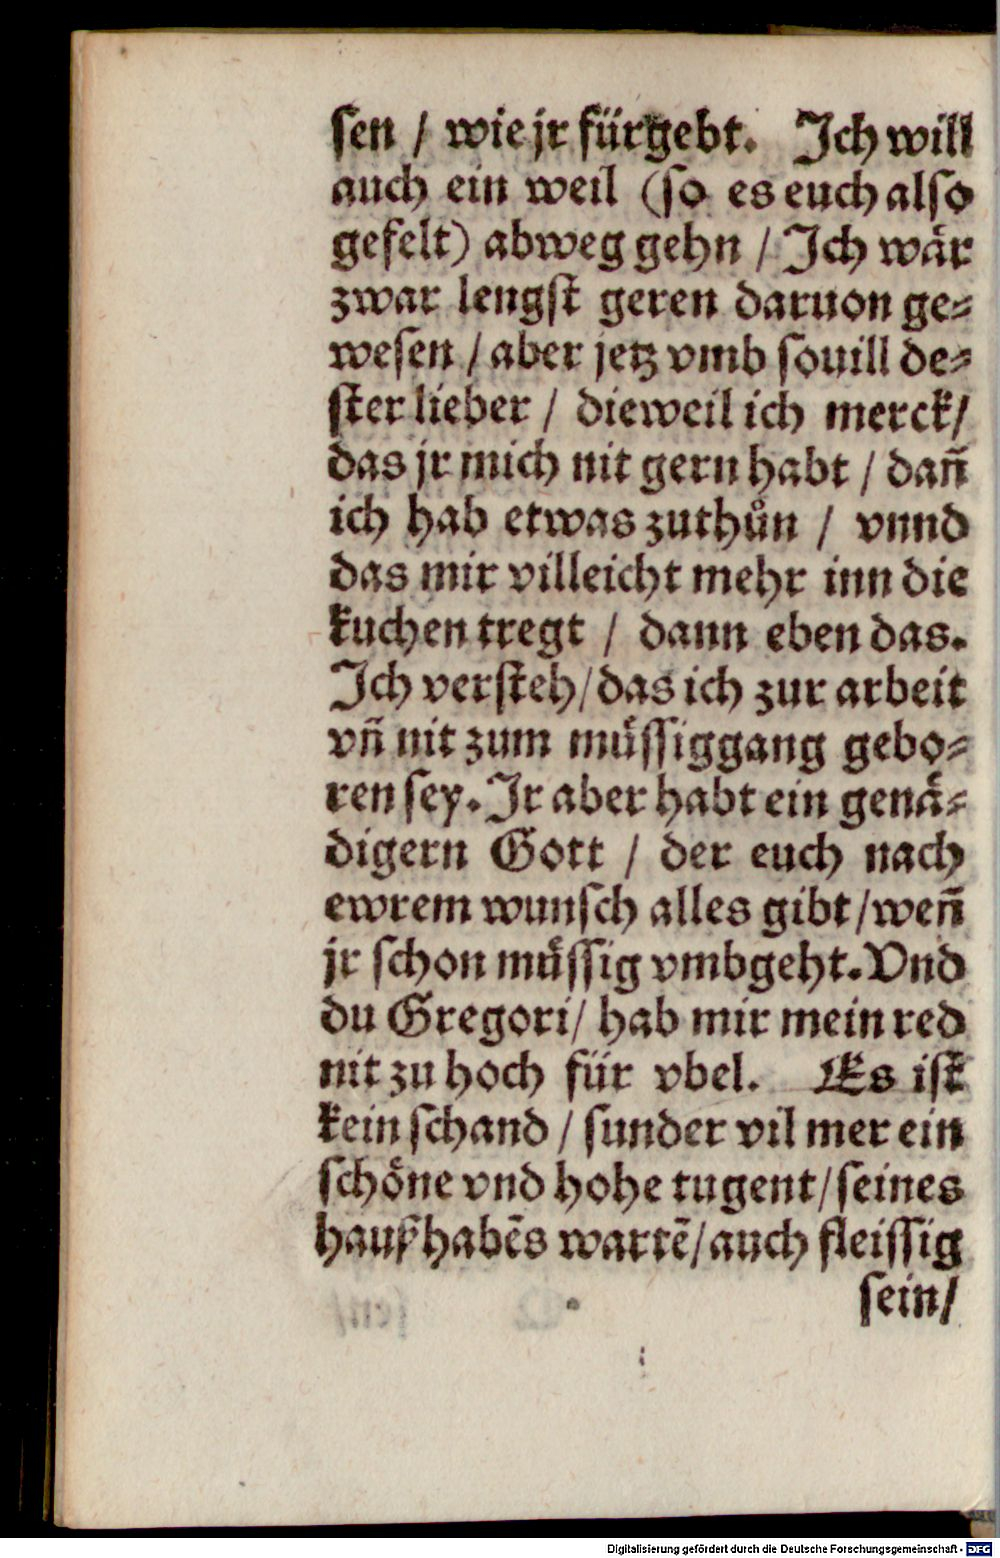 ſen / wie jr fürgebt. Ich will
auch ein weil (ſo es euch alſo
gefelt) abweg gehn / Ich wår
zwar lengſt geren daruon ge⸗
weſen / aber jetz vmb ſouill de⸗
ſter lieber / dieweil ich merck /
das jr mich nit gern habt / dañ
ich hab etwas zuthůn / vnnd
das mir villeicht mehr inn die
kuchen tregt / dann eben das.
Ich verſteh / das ich zur arbeit
vñ nit zum muͤſſiggang gebo⸗
ren ſey. Ir aber habt ein genaͤ⸗
digern Gott / der euch nach
ewrem wunſch alles gibt / weñ
jr ſchon muͤſſig vmbgeht. Vnd
du Gregori / hab mir mein red
nit zu hoch für vbel. Es iſt
kein ſchand / ſunder vil mer ein
ſchoͤne vnd hohe tugent / ſeines
haußhabẽs wartẽ / auch fleiſſig
ſein /
Digitalisierung gefördert durch die Deutsche Forschungsgemeinschaft - DFG